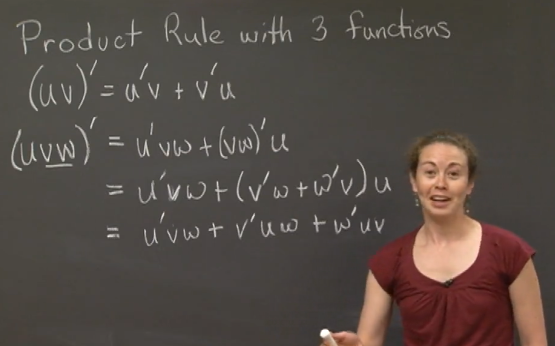 Product Rule with 3 functions
(uv)' = u'v + v'u
(uvw)' = u'vw + (vw)'u
= u'vw + (v'w + w'v)u
= u'vw + v'uw + w'uv